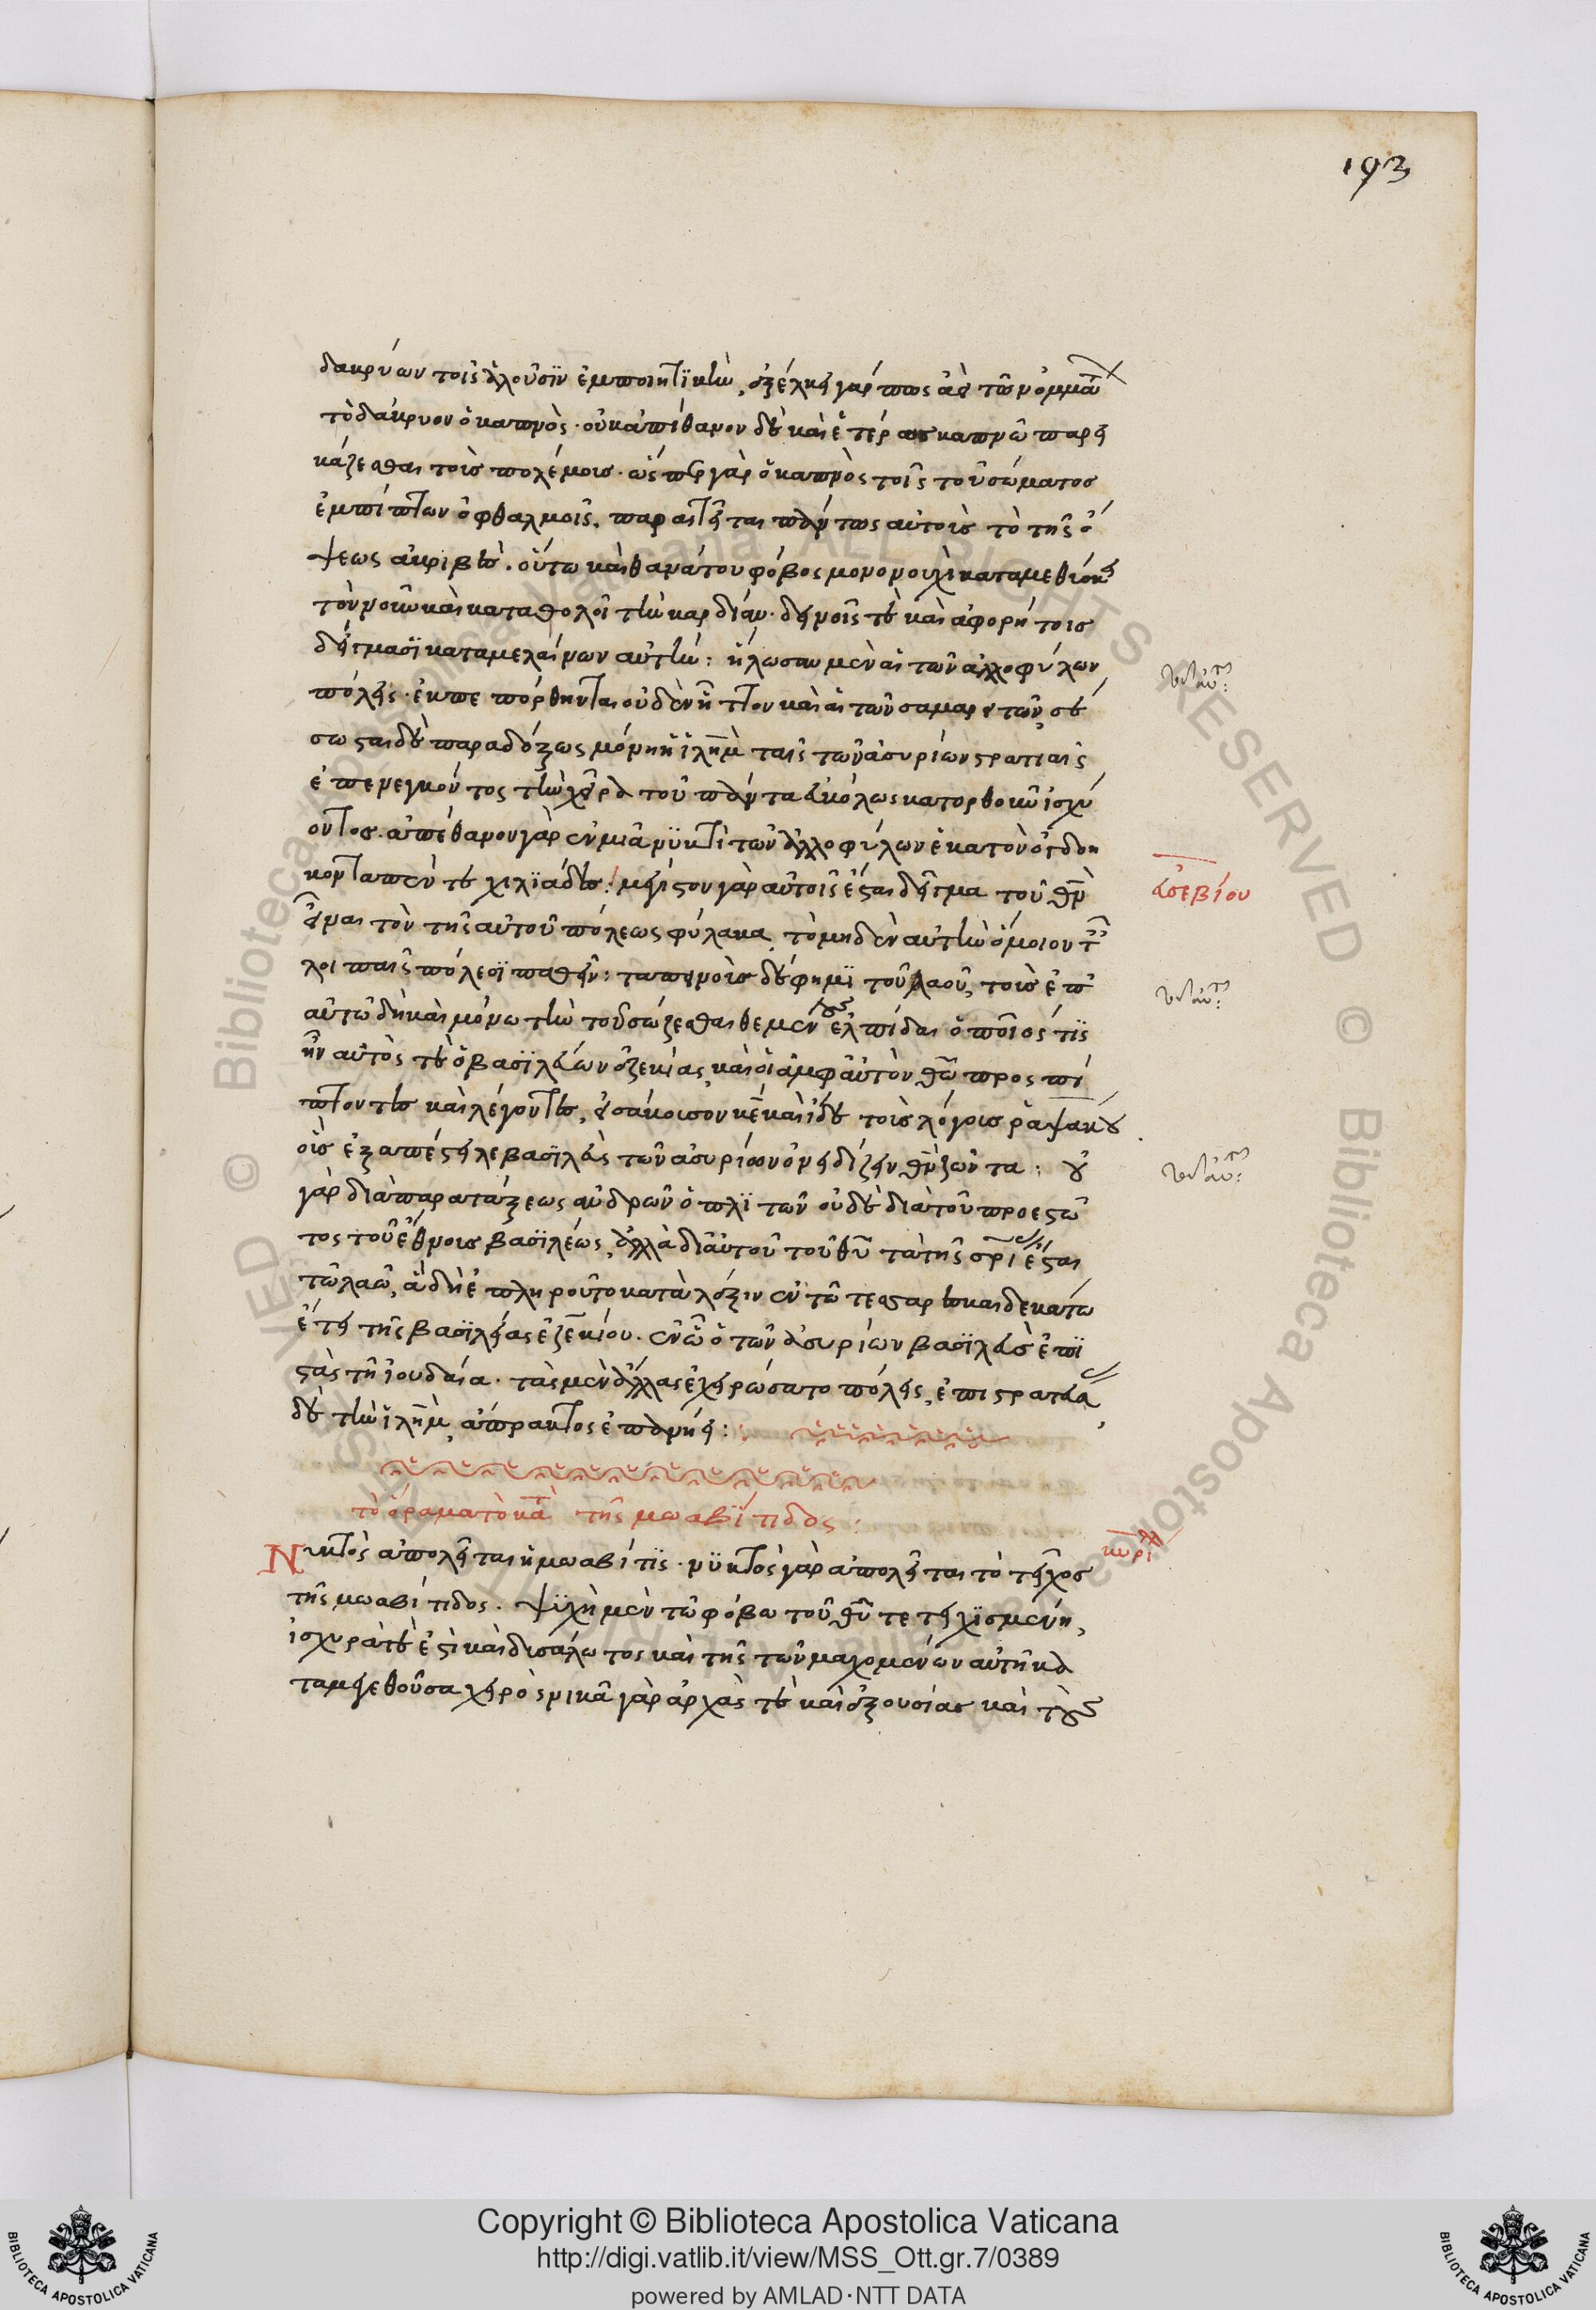 193
δακρύων τοῖς ἁλοῦσϊν ἐμποιητϊκὴν, ἐξέλκει γάρ πως ἀεὶ τῶν ὀμμάτων
τὸ δάκρυον ὁ καπνὸς· οὐκ ἀπίθανον δὲ καὶ ἑτέρως καπνῶ παρει
κάζεσθαι τοῖς πολέμοις· ὥσπερ γὰρ ὁ καπνὸς τοῖς τοῦ σώματος
ἐμπίπτων ὀφθαλμοῖς, παραιτεῖται πάντως αὐτοῖς τὸ τῆς ὄ
ψεως ἀκριβὲς. οὕτω καὶ θανάτου φόβος μονονουχὶ καταμεθύσκει
τὸν νοῦν καὶ καταθολοῖ τὴν καρδίαν. δεινοῖς τὲ καὶ ἀφορήτοις
δείμασϊ καταμελαίνων αὐτήν: ἥλωσαν μὲν αἱ τῶν ἀλλοφύλων
πόλεις. ἐκπεπόρθηνται οὐδὲν ἧττον καὶ αἱ τῶν σαμαρειτῶν, σέ
σωσται δὲ παραδόξως μόνη ἡ ἱλημ ταῖς τῶν ἀσυρίων στρατιαῖς
ἐπενεγκόντος τὴν χεῖρα τοῦ πάντα εὐκόλως κατορθοῦν ἰσχύ
οντος. ἀπέθανον γὰρ ἐν μιᾶ νϋκτὶ τῶν ἀλλοφύλων ἑκατὸν ὀγδοη
κονταπέντε χιλϊάδες: μέγιστον γὰρ αὐτοῖς ἔσται δεῖγμα τοῦ θν
εἶναι τὸν τῆς αὐτοῦ πόλεως φύλακα, τὸ μηδὲν αὐτὴν ὅμοιον ταῖς
λοιπαῖς πόλεσϊ παθεῖν: ταπεινοῖς δέ φημϊ τοῦ λαοῦ, τοῖς ἐπ
αὐτῶ δὴ καὶ μόνω τὴν τοῦ σώζεσθαι θεμένοις ἐλπίδα· ὁποῖός τϊς
ἦν αὐτὸς τὲ ὁ βασϊλεύων ἐζεκίας, καὶ οἱ ἀμφ αὐτὸν θω προσπί
πτοντες καὶ λέγοντες, εἰσάκουσον κε καὶ ἴδε τοὺς λόγους ῥαψάκου
οὓς ἐξαπέστειλε βασϊλεὺς τῶν ἀσυρίων ὀνειδίζειν θν ζῶντα: οὐ
γὰρ διὰ παρατάξεως ἀνδρῶν ὁπλϊτῶν οὐδὲ διὰ τοῦ προεστῶ
τος τοῦ ἔθνους βασϊλέως, ἀλλὰ δι αὐτοῦ τοῦ θυ τὰ τῆς σρι ἔσται
τῶ λαῶ, ἃ δὴ ἐπληροῦτο κατὰ λέξιν ἐν τῶ τεσσαρεσκαιδεκάτω
ἔτει τῆς βασϊλείας ἐζεκίου. ἐν ὧ ὁ τῶν ἀσυρίων βασϊλεὺς ἐπϊ
στὰς τῆ ἰουδαία. τὰς μὲν ἄλλας ἐχειρώσατο πόλεις, ἐπιστρατεύσας
δὲ τὴν ἱλημ, ἄπρακτος ἐπάνηει:
τὸ ὅραμα τὸ κατὰ τῆς μωαβίτιδος:
Νυκτὸς ἀπολεῖται ἡ μωαβίτϊς. νϋκτὸς γὰρ ἀπολεῖται τὸ τεῖχος
τῆς μωαβίτιδος. ψϋχὴ μὲν τῶ φόβω τοῦ θυ τετειχϊσμένη,
ἰσχυρὰ τὲ ἐστὶ καὶ δυσάλωτος καὶ τῆς τῶν μαχομένων αὐτῆ κα
ταμειεθοῦσα χειρὸς νικᾶ γὰρ ἀρχὰς τὲ καὶ ἐξουσίας καὶ τοὺς
τοῦ αὐτοῦ:
εὐσεβίου
τοῦ αὐτοῦ:
τοῦ αὐτοῦ:
κυριλλ
Copyright © Biblioteca Apostolica Vaticana
http://digi.vatlib.it/view/MSS_Ott.gr.7/0389
powered by AMLAD·NTT DATA
BIBLIOTECA APOSTOLICA VATICANA
BIBLIOTECA APOSTOLICA VATICANA